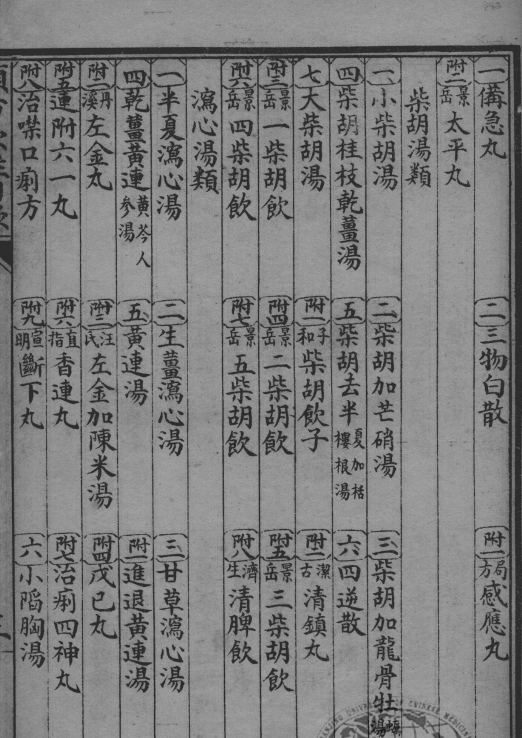 一備急丸 二三物白散 附一局方感應丸
附二景岳太平丸
柴胡湯類
一小柴胡湯 二柴胡加芒硝湯 三柴胡加龍骨牡蠣湯
四柴胡桂枝乾薑湯 五柴胡去半夏加栝樓根湯 六四逆散
七大柴胡湯 附子和柴胡飲子 附一潔古清鎮丸
附三景岳一柴胡飲 附四景岳二柴胡飲 附五景岳三柴胡飲
附六景岳四柴胡飲 附七景岳五柴胡飲 附八濟生清脾飲
瀉心湯類
一半夏瀉心湯 二生薑瀉心湯 三甘草瀉心湯
四乾薑黃連黃芩人參湯 五黃連湯 附一進退黃連湯
附二丹溪左金丸 附三汪氏左金加陳米湯 附四戊己丸
附五連附六一丸 附六直指香連丸 附七治痢四神丸
附八治噤口痢方 附九宣明斷下丸 六小陷胸湯